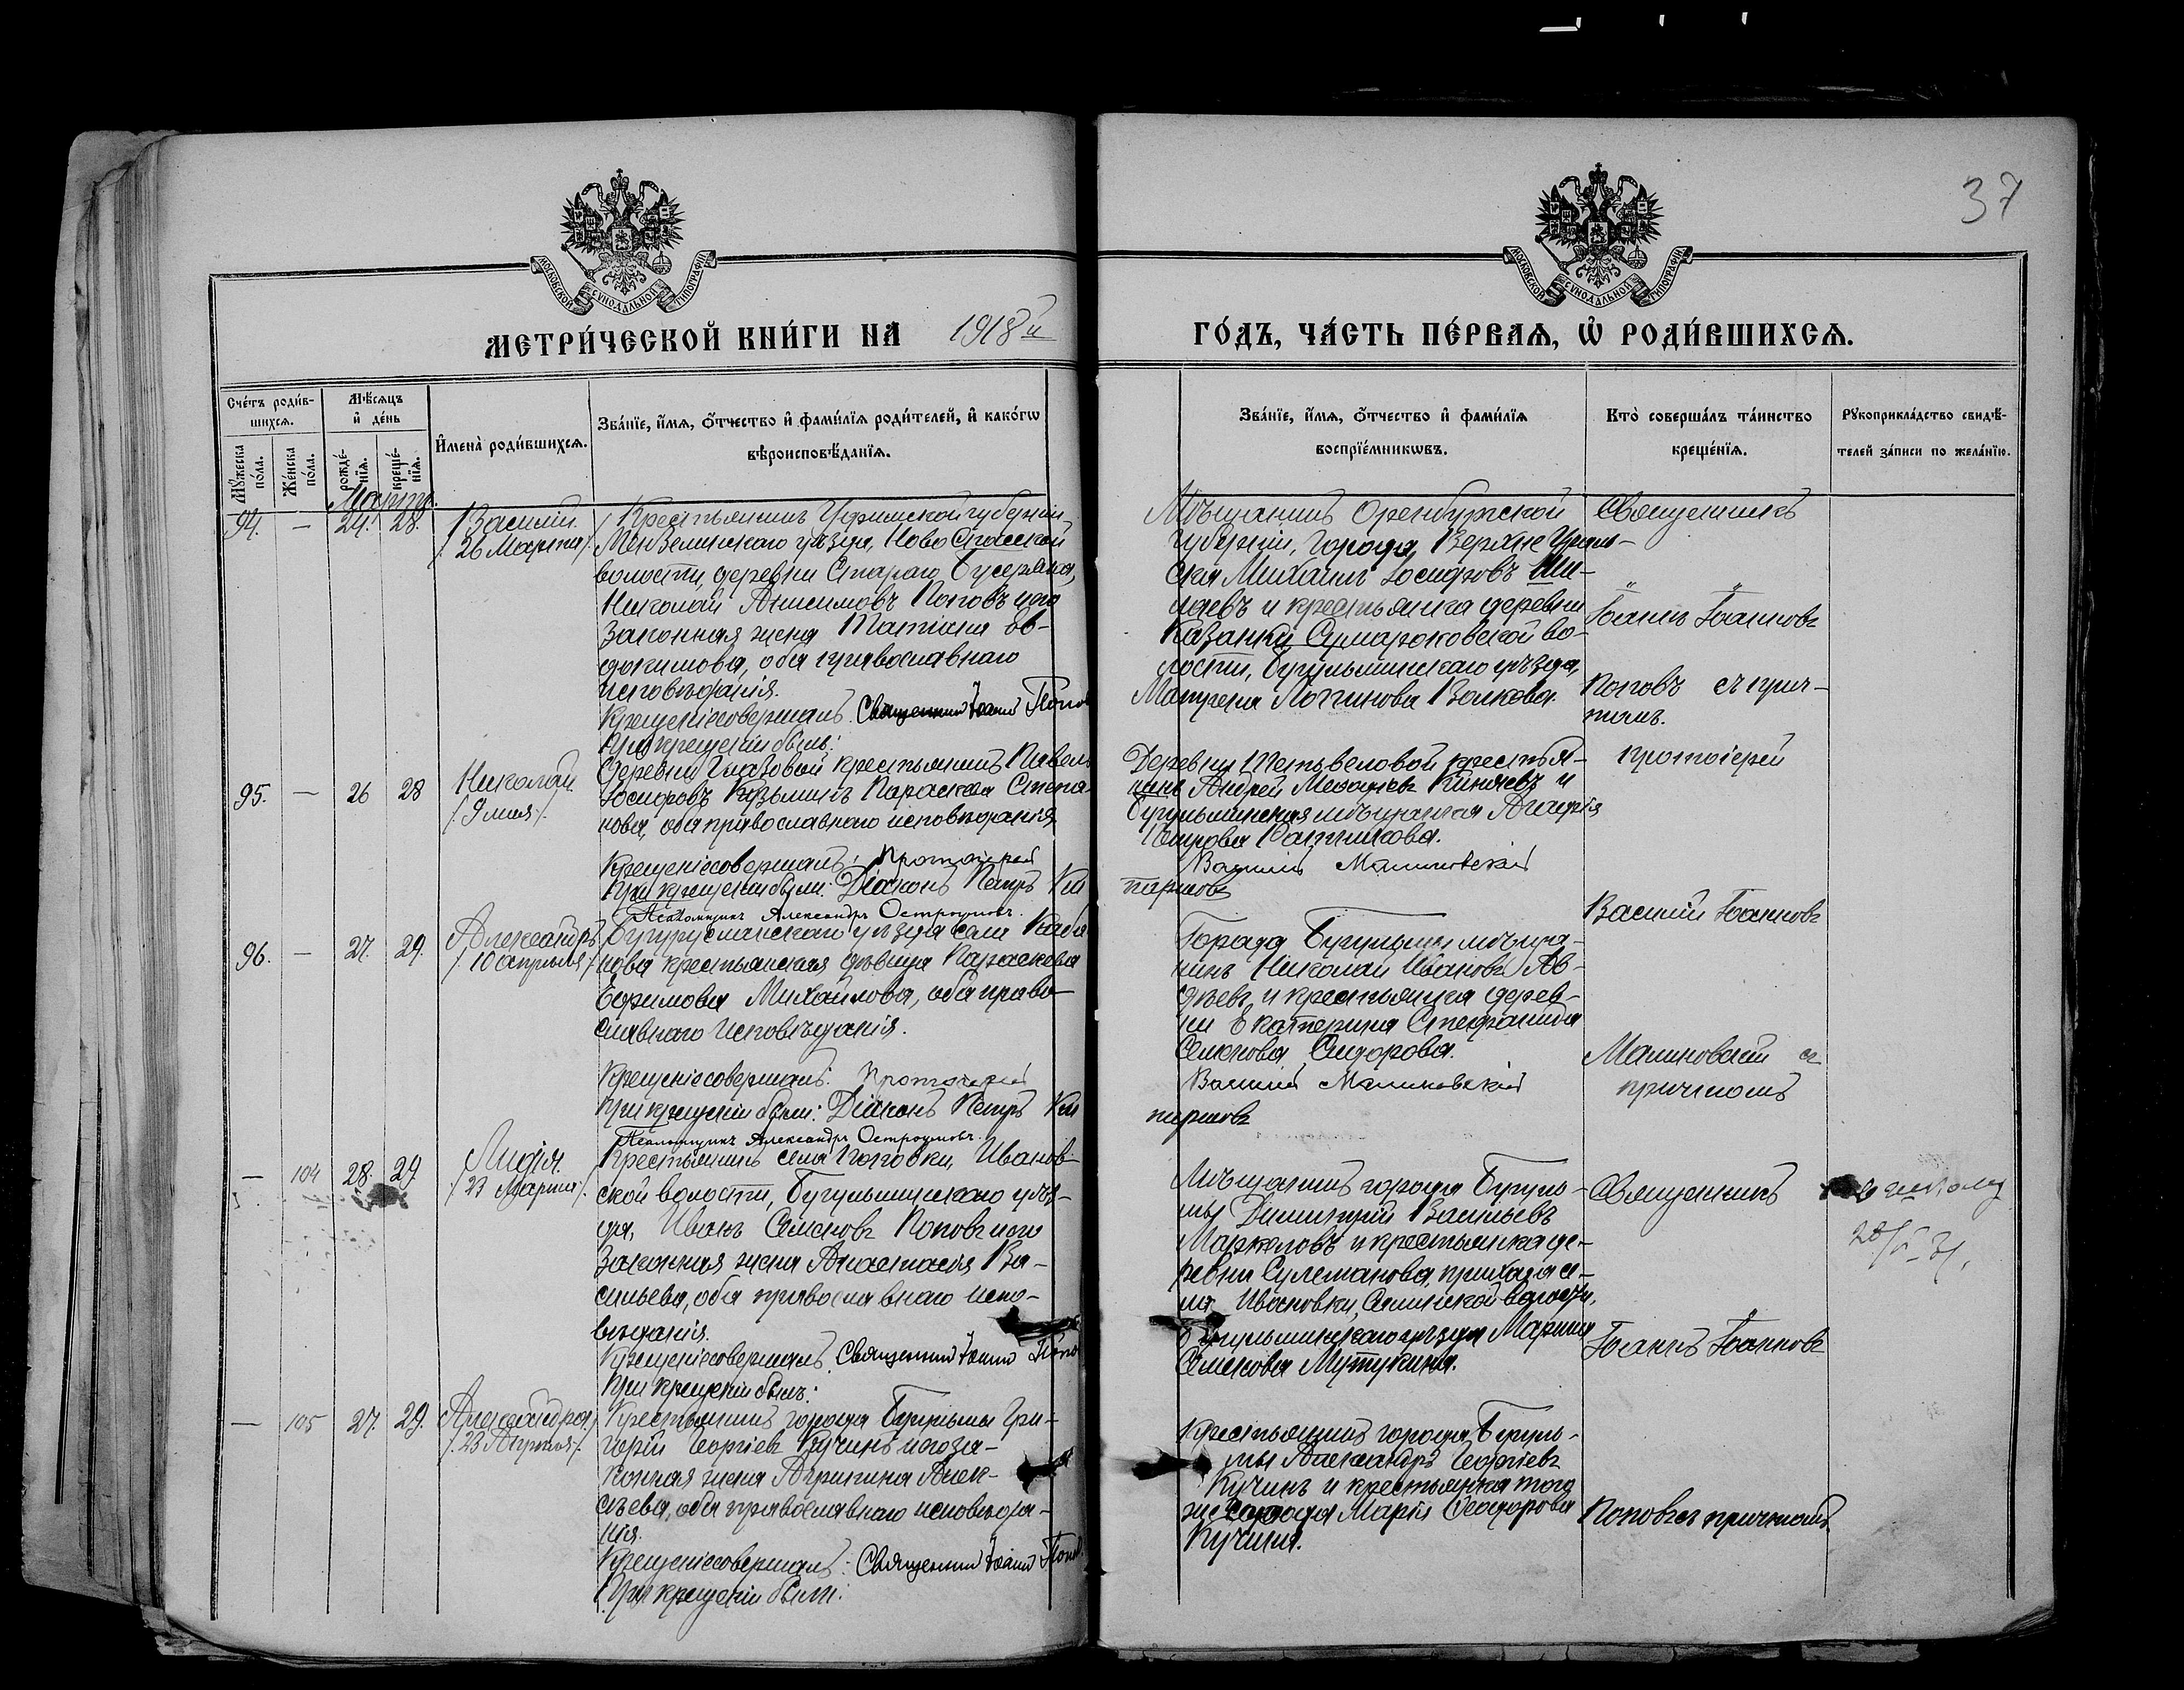 37
МОСКОВСКОЙ СѴНОДАЛЬНОЙ ТИПОГРАФІИ
МОСКОВСКОЙ СѴНОДАЛЬНОЙ ТИПОГРАФІИ
МЕТРИ́ЧЕСКОЙ КНИ́ГИ НА 1918й
ГО́ДЪ, ЧА́СТЬ ПЕ́РВАЯ, Ѡ҆ РОДИ́ВШИХСЯ.
Сче́тъ роди́в-
шихся.
Мꙋ́жеска по́ла.
Же́нска по́ла.
Мѣ́сяцъ
и҆ де́нь
рожде́-
нїя.
креще́-
нїя.
И҆мена̀ роди́вшихся.
Зва́нїе, и҆́мя, ѻ҆́тчество и҆ фами́лїя роди́телей, и҆ како́гѡ
вѣроисповѣ́данїя.
Зва́нїе, и҆́мя, ѻ҆́тчество и҆ фами́лїя
воспрїе́мникѡвъ.
Кто̀ соверша́лъ та́инство
креще́нїя.
Рꙋкоприкла́дство свидѣ́-
телей за́писи по жела́нїю.
Мартъ.
94. — 24. 28. Василій.
/26 Марта/.
Крестьянинъ Уфимской губерніи
Мензелинскаго уѣзда, Ново Спасской
волости, деревни Стараго
Николай Анисимовъ Поповъ и его
законная жена Татіана Ев-
докимова, оба православнаго
исповѣданія.
Крещеніе совершалъ: Священникъ Іоаннъ Попов
При крещеніи былъ:
Мѣщанинъ Оренбургской
губерніи, города Верхне Ураль-
ска Михаилъ Іосифовъ
и крестьянка деревни
Казанки, Сумароковской во-
лости, Бугульминскаго уѣзда,
Матрена Логгинова Волкова.
Священникъ
Іоаннъ Іоанновъ
Поповъ съ прич-
томъ.
95. — 26 28 Николай.
/9 мая/.
Деревни Глазовой крестьянинъ Павелъ
Іосифовъ Козьминъ Параскева Степа-
нова, оба православнаго исповѣданія.
Крещеніе совершалъ: Протоіерей
При крещеніи были: Діаконъ Петръ Ки
Псаломщикъ Александръ Остроумовъ.
Деревни крестья-
нинъ Андрей и
Бугульминская мѣщанка Агафія
Петрова
Василій Малиновскій
парисовъ
Протоіерей
Василій Іоанновъ
96. — 27. 29. Александръ
/10 апрѣля/.
Бугурусланскаго уѣзда села Каба
нова крестьянская дѣвица Параскева
Ефимова Михайлова, оба право-
славнаго исповѣданія.
Крещеніе совершалъ: Протоіерей
При крещеніи были: Діаконъ Петръ Ки
Псаломщикъ Александръ Остроумовъ.
Города Бугульмы мѣща-
нинъ Николай Ивановъ Ав-
дѣевъ и крестьянка дерев-
ни Екатерина Стефанида
Семенова Сидорова.
Василій Малиновскій
парисовъ
Малиновскій съ
причтомъ
— 104 28. 29. Лидія.
/23 Марта/.
Крестьянинъ села Поповки, Иванов-
ской волости, Бугульминскаго уѣз-
да, Иванъ Семеновъ Поповъ и его
законная жена Анастасія Ва-
сильева, оба православнаго испо-
вѣданія.
Крещеніе совершалъ: Священникъ Іоаннъ Попо
При крещеніи былъ:
Мѣщанинъ города Бугуль-
мы Димитрій Васильевъ
Маркеловъ и крестьянка де-
ревни Сулеманова, прихода се-
ла Ивановки, волости,
Бугульминскаго уѣзда Марина
Семенова Мутукина.
Священникъ
Іоаннъ Іоанновъ
— 105 27. 29. Александра.
/23 Апрѣля/.
Крестьянинъ города Бугульмы Гри-
горій Георгіевъ Кучинъ и его за-
конная жена Агрипина Алек-
сѣева, оба православнаго исповѣда-
нія.
Крещеніе совершалъ: Священникъ Іоаннъ Попов.
При крещеніи были:
Крестьянинъ города Бугуль-
мы Александръ Георгіевъ
Кучинъ и крестьянка того
же города Марія Ѳеодорова
Кучина.
Поповъ съ причтомъ